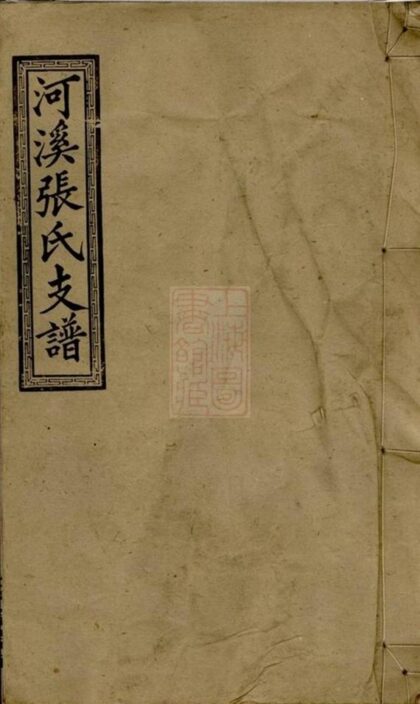 河溪張氏支譜
上海圖書館藏